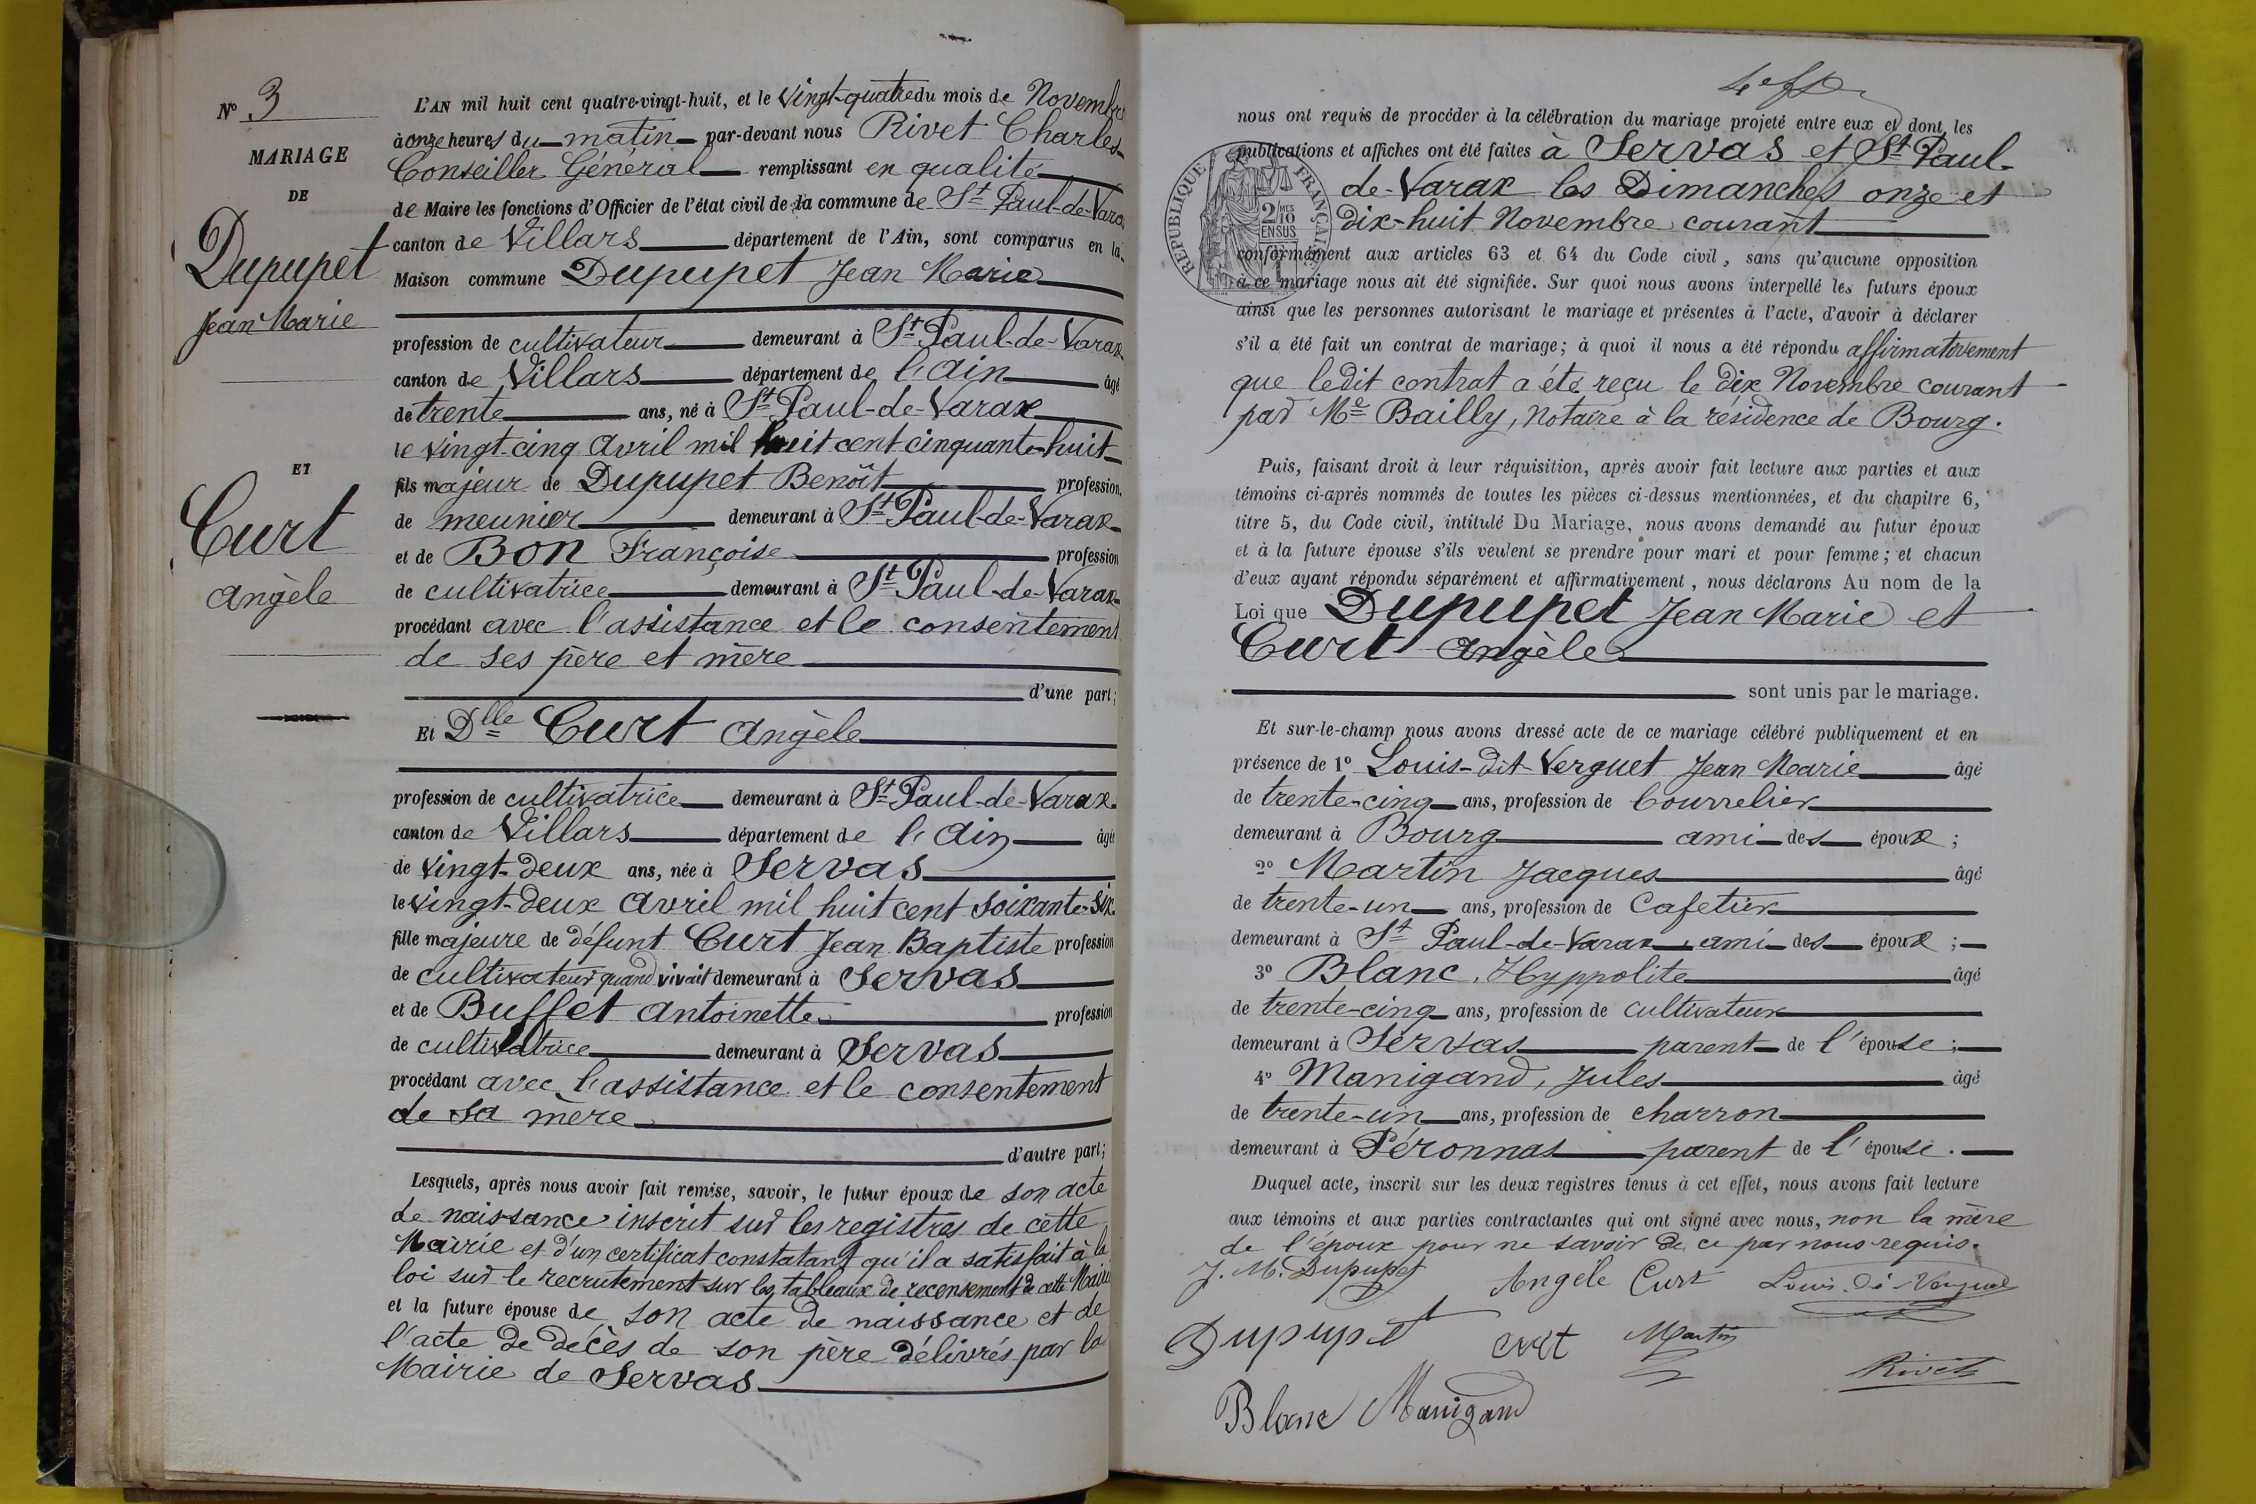 N° 3
MARIAGE
DE
Dupupet
Jean Marie
ET
Curt
Angèle
L'AN mil huit cent quatre-vingt-huit, et le vingt-quatre du mois de Novembre
à onze heures du matin par-devant nous Rivet Charles
Conseiller Général remplissant en qualité
de Maire les fonctions d'Officier de l'état civil de la commune de St Paul-de-Varax
canton de Villars département de l'Ain, sont comparus en la
Maison commune Dupupet Jean Marie
profession de cultivateur demeurant à St Paul-de-Varax
canton de Villars département de l'Ain âgé
de trente ans, né à St Paul-de-Varax
le vingt-cinq Avril mil huit cent cinquante-huit
fils majeur de Dupupet Benoît profession
de meunier demeurant à St Paul-de-Varax
et de Bon Françoise profession
de cultivatrice demeurant à St Paul-de-Varax
procédant avec l'assistance et le consentement
de ses père et mère
d'une part;
Et Dlle Curt Angèle
profession de cultivatrice demeurant à St Paul-de-Varax
canton de Villars département de l'Ain âgé
de vingt-deux ans, née à Servas
le vingt-deux Avril mil huit cent soixante-six
fille majeure de défunt Curt Jean Baptiste profession
de cultivateur quand vivait demeurant à Servas
et de Buffet Antoinette profession
de cultivatrice demeurant à Servas
procédant avec l'assistance et le consentement
de sa mère
d'autre part;
Lesquels, après nous avoir fait remise, savoir, le futur époux de son acte
de naissance inscrit sur les registres de cette
Mairie et d'un certificat constatant qu'il a satisfait à la
loi sur le recrutement sur les tableaux de recensement de cette Mairie
et la future épouse de son acte de naissance et de
l'acte de décès de son père délivrés par la
Mairie de Servas
nous ont requis de procéder à la célébration du mariage projeté entre eux et dont les
publications et affiches ont été faites à Servas et St Paul-
de-Varax les Dimanches onze et
dix-huit Novembre courant
RÉPUBLIQUE FRANÇAISE
2/10 MES
EN SUS
conformément aux articles 63 et 64 du Code civil, sans qu'aucune opposition
à ce mariage nous ait été signifiée. Sur quoi nous avons interpellé les futurs époux
ainsi que les personnes autorisant le mariage et présentes à l'acte, d'avoir à déclarer
s'il a été fait un contrat de mariage; à quoi il nous a été répondu affirmativement
que ledit contrat a été reçu le dix Novembre courant
par Me Bailly, Notaire à la résidence de Bourg.
Puis, faisant droit à leur réquisition, après avoir fait lecture aux parties et aux
témoins ci-après nommés de toutes les pièces ci-dessus mentionnées, et du chapitre 6,
titre 5, du Code civil, intitulé Du Mariage, nous avons demandé au futur époux
et à la future épouse s'ils veulent se prendre pour mari et pour femme; et chacun
d'eux ayant répondu séparément et affirmativement, nous déclarons Au nom de la
Loi que Dupupet Jean Marie et
Curt Angèle
sont unis par le mariage.
Et sur-le-champ nous avons dressé acte de ce mariage célébré publiquement et en
présence de 1° Louis-dit-Verguet Jean Marie âgé
de trente-cinq ans, profession de bourrelier
demeurant à Bourg ami des époux;
2° Martin Jacques âgé
de trente-un ans, profession de Cafetier
demeurant à St Paul-de-Varax, ami des époux;
3° Blanc, Hyppolite âgé
de trente-cinq ans, profession de cultivateur
demeurant à Servas parent de l'épouse;
4° Manigand, Jules âgé
de trente-un ans, profession de charron
demeurant à Péronnas parent de l'épouse.
Duquel acte, inscrit sur les deux registres tenus à cet effet, nous avons fait lecture
aux témoins et aux parties contractantes qui ont signé avec nous, non la mère
de l'époux pour ne savoir de ce par nous requis.
J. M. Dupupet Angèle Curt Louis. Di Verguet
Dupupet curt Martin
Rivet
Blanc Manigand